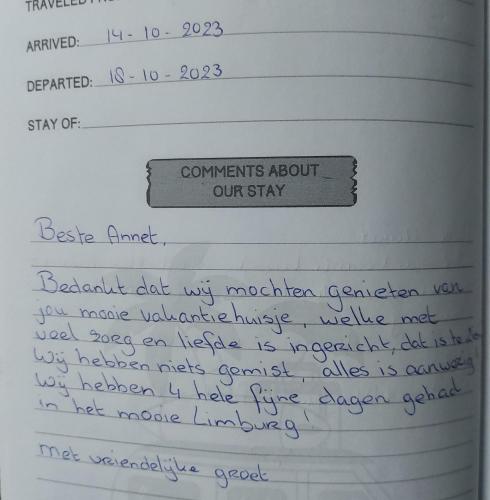 TRAVELED
ARRIVED: 14-10-2023
DEPARTED: 18-10-2023
STAY OF:
COMMENTS ABOUT
OUR STAY
Beste Annet,
Bedankt dat wij mochten genieten van
jou mooie vakantiehuisje, welke met
veel zorg en liefde is ingericht, dat is te
Wij hebben niets gemist, alles is aanwezig
Wij hebben 4 hele fijne dagen gehad
in het mooie Limburg!
met vriendelijke groet